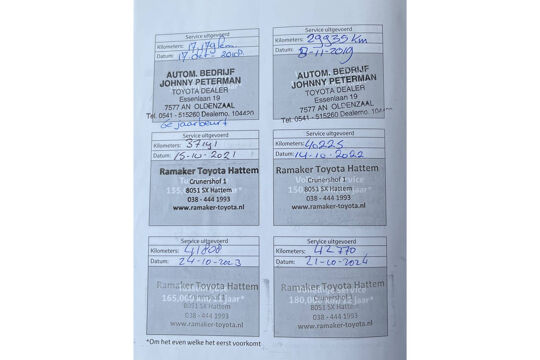 Service uitgevoerd
Kilometers: 17.179 km
Datum: 17 okt
AUTOM. BEDRIJF
JOHNNY PETERMAN
TOYOTA DEALER
Essenlaan 19
7577 AN OLDENZAAL
Tel. 0541 - 515260 Dealerno. 104420
6e jaarbeurt
Service uitgevoerd
Kilometers: 29935 km
Datum: 8-11-2019
AUTOM. BEDRIJF
JOHNNY PETERMAN
TOYOTA DEALER
Essenlaan 19
7577 AN OLDENZAAL
Tel. 0541 - 515260 Dealerno. 104420
Service uitgevoerd
Kilometers: 37141
Datum: 15-10-2021
Ramaker Toyota Hattem
Crunershof 1
8051 SX Hattem
038 - 444 1993
www.ramaker-toyota.nl
Service uitgevoerd
Kilometers: 40225
Datum: 14-10-2022
Ramaker Toyota Hattem
Crunershof 1
8051 SX Hattem
038 - 444 1993
www.ramaker-toyota.nl
Service uitgevoerd
Kilometers: 41808
Datum: 24-10-2023
Ramaker Toyota Hattem
165,000 km/11 jaar*
8051 SX Hattem
038 - 444 1993
www.ramaker-toyota.nl
Service uitgevoerd
Kilometers: 42770
Datum: 21-10-2024
Ramaker Toyota Hattem
Crunershof 1
180,000 km/12 jaar*
8051 SX Hattem
038 - 444 1993
www.ramaker-toyota.nl
*Om het even welke het eerst voorkomt